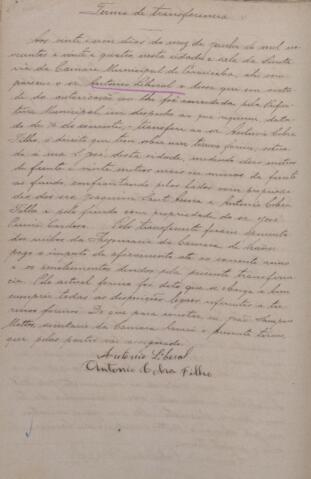 Termo de transferencia
Aos vinte e um dias do mez de Junho de mil no-
vecentos e vinte e quatro nesta cidade e sala da Secreta-
ria da Camara Municipal de com-
pareceu o sr. Antonio Liberal e disse que em vista
de da autorisação que lhe foi concedida pela Prefei-
tura Municipal em despacho ao seu requerimento, data-
do de do corrente, transfere ao sr. Antonio
Filho, o direito que tem sobre um terreno foreiro, situa-
do á rua S. José desta cidade, medindo dez metros
de frente e vinte metros mais ou menos da frente
ao fundo, confrontando pelos lados com proprieda-
des dos srs. Joaquim Sant'Anna e Antonio
Filho e pelo fundo com propriedade do sr. José
Cardoso. Pelo transferente foram
dos recibos da Thesouraria da Camara de haver
pago o imposto de aforamento até o corrente anno
e os emolumentos devidos pela presente transferen-
cia. Pelo actual foreiro foi dito que se obriga a bem
cumprir todas as disposições legaes referentes a ter-
renos foreiros. Do que para constar eu, João Sampaio
Mattos, secretario da Camara, lavrei o presente termo,
que pelas partes vae assignado.
Antonio Liberal
Antonio Filho